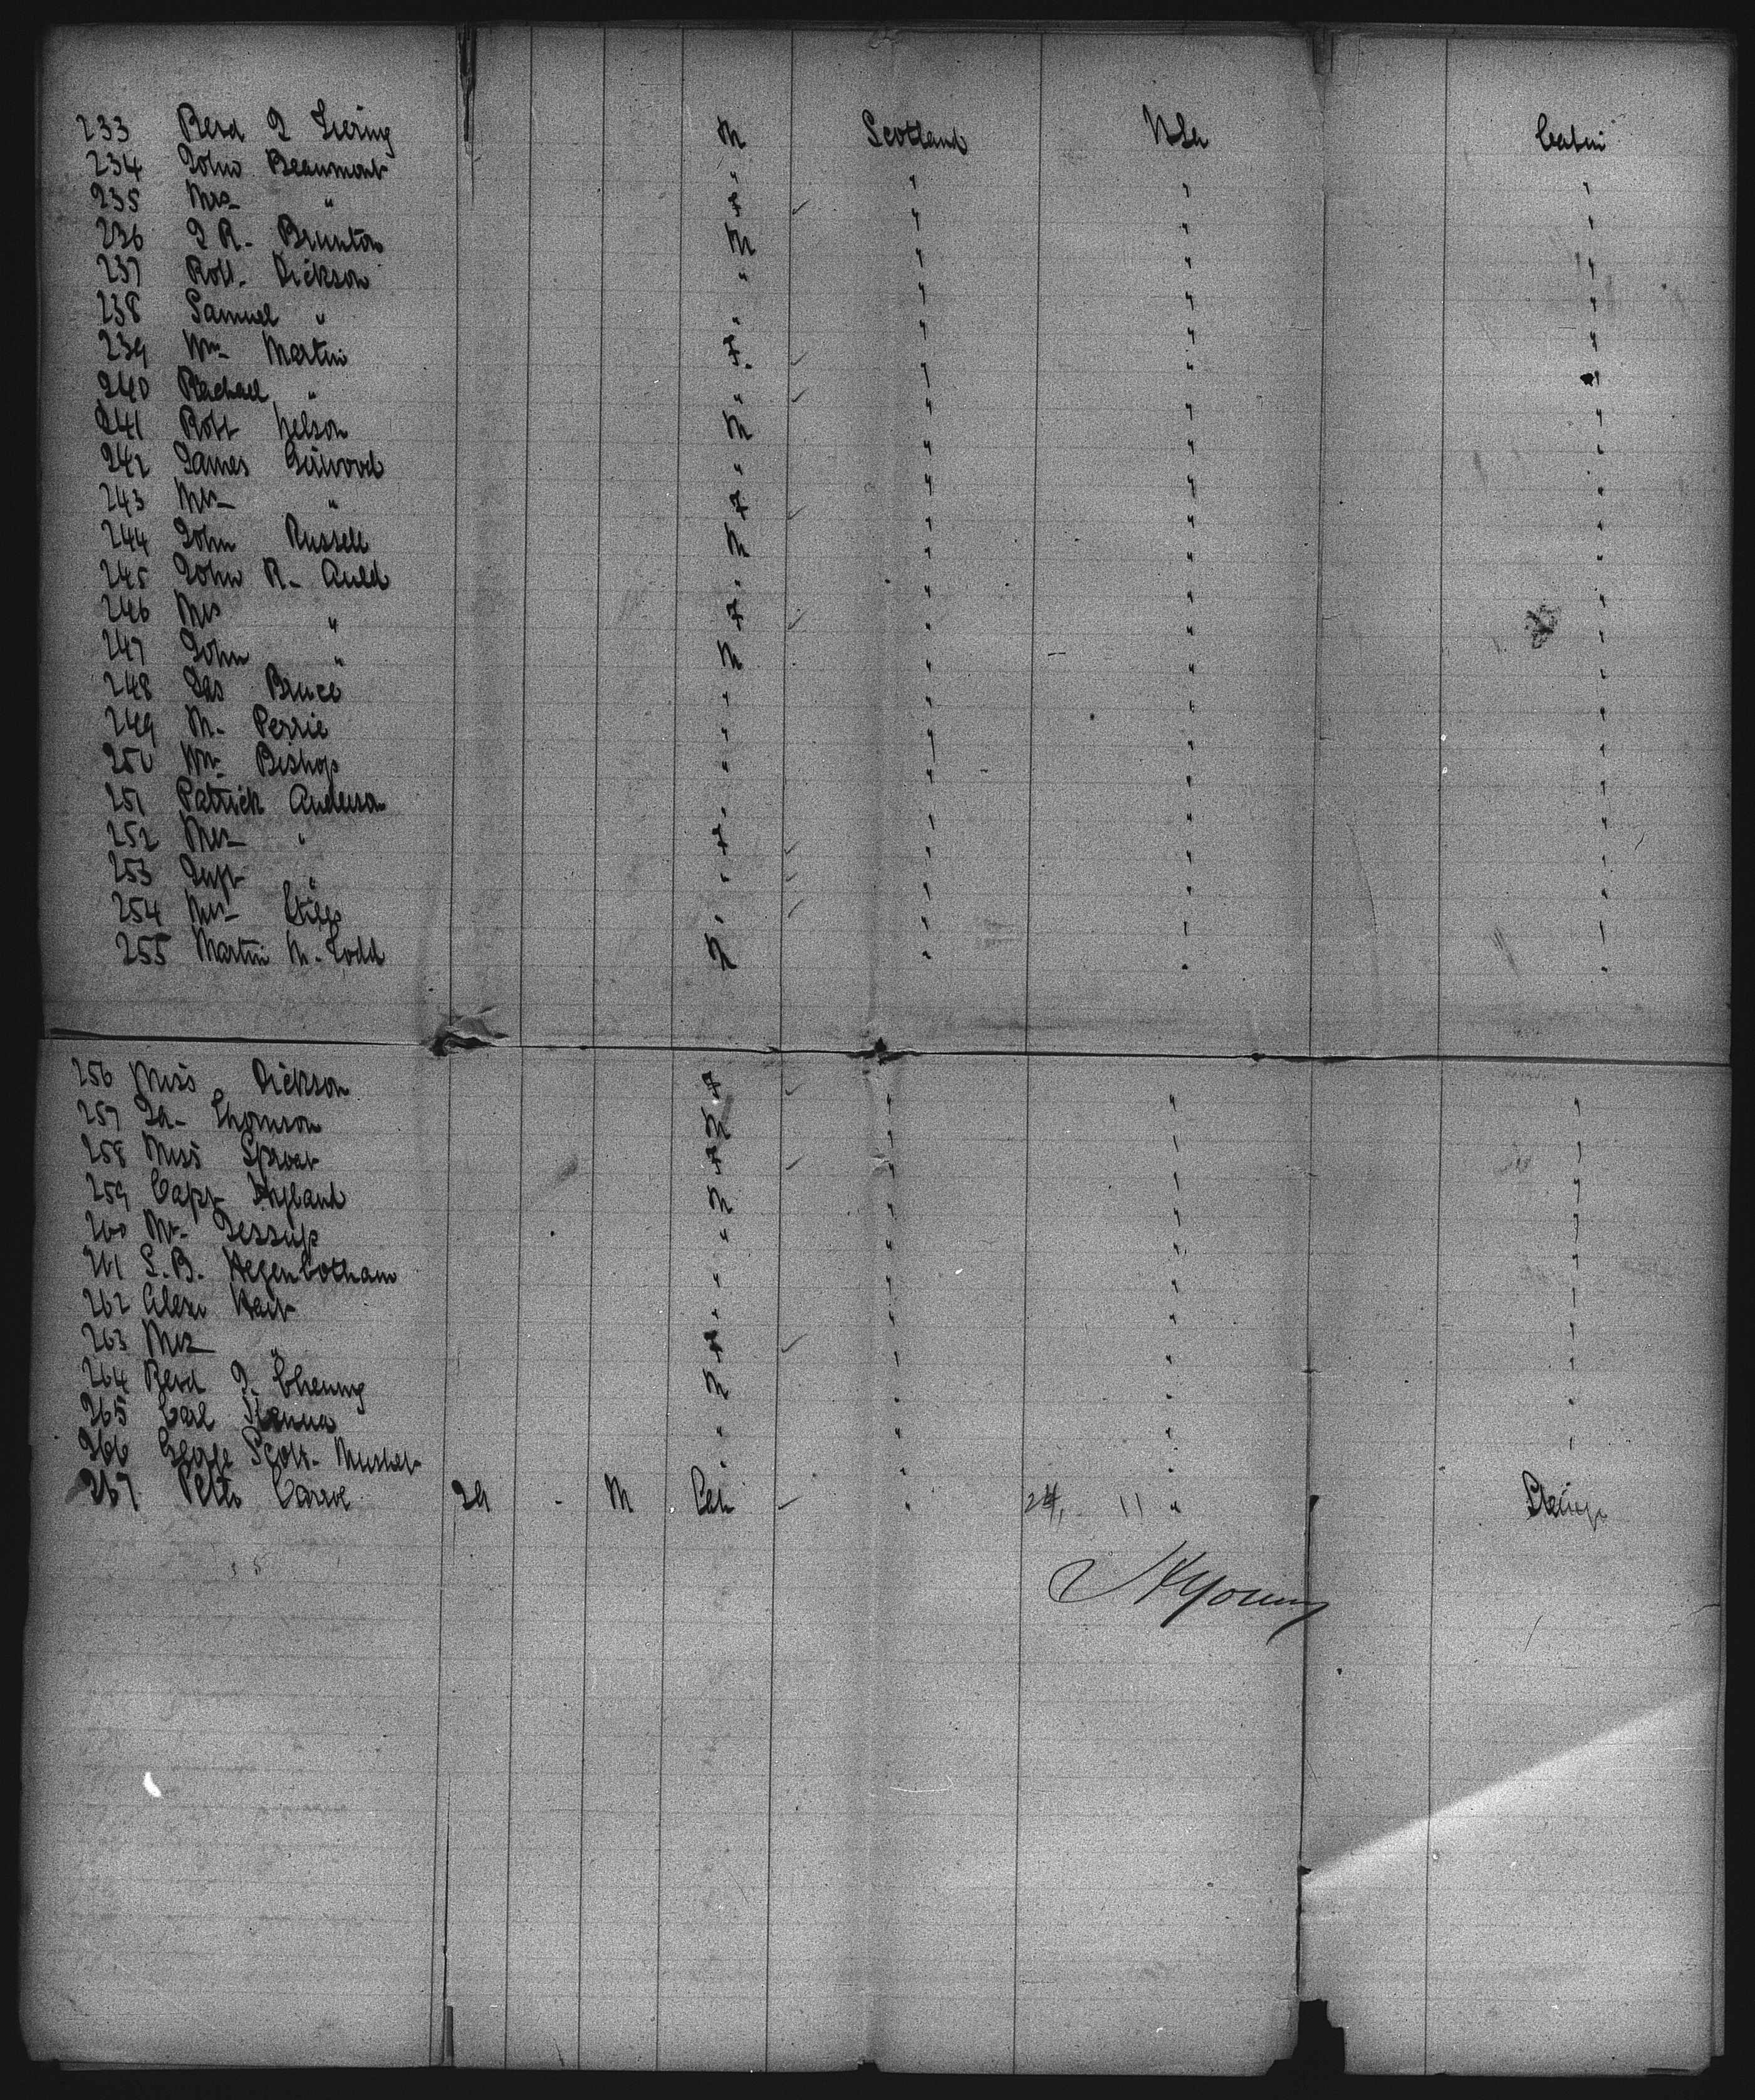 233 Revd J M Scotland USA Cabin
234 John Beaumont " " " "
235 Mrs " F " " "
236 J R. Brunton M " " "
237 Robt. Dickson " " " "
238 Samuel " " " " "
239 Mrs Martin F. " " "
240 Rachael " " " " "
241 Robt Nelson M " " "
242 James " " " "
243 Mrs " F " " "
244 John Russell M " " "
245 John R. Auld " " " "
246 Mrs " F " " "
247 John " M " " "
248 Jas Bruce " " " "
249 M. Perrie " " " "
250 Wm Bishop " " " "
251 Patrick Anderson " " " "
252 Mrs " F " " "
253 Inft " " " " "
254 Mrs " " " "
255 Martin M. Todd M " " "
256 Miss Dickson F " " "
257 Ja. Thomson M " " "
258 Miss Sproat F " " "
259 Capt M " " "
260 Mr. Jessup " " " "
261 S. B. Hegenbotham " " " "
262 Alexr " " " "
263 Mrs " F " " "
264 Revd J. M " " "
265 Carl " " " "
266 George Scott " " " "
267 Peter 24 - M " 24, 11 "
Young